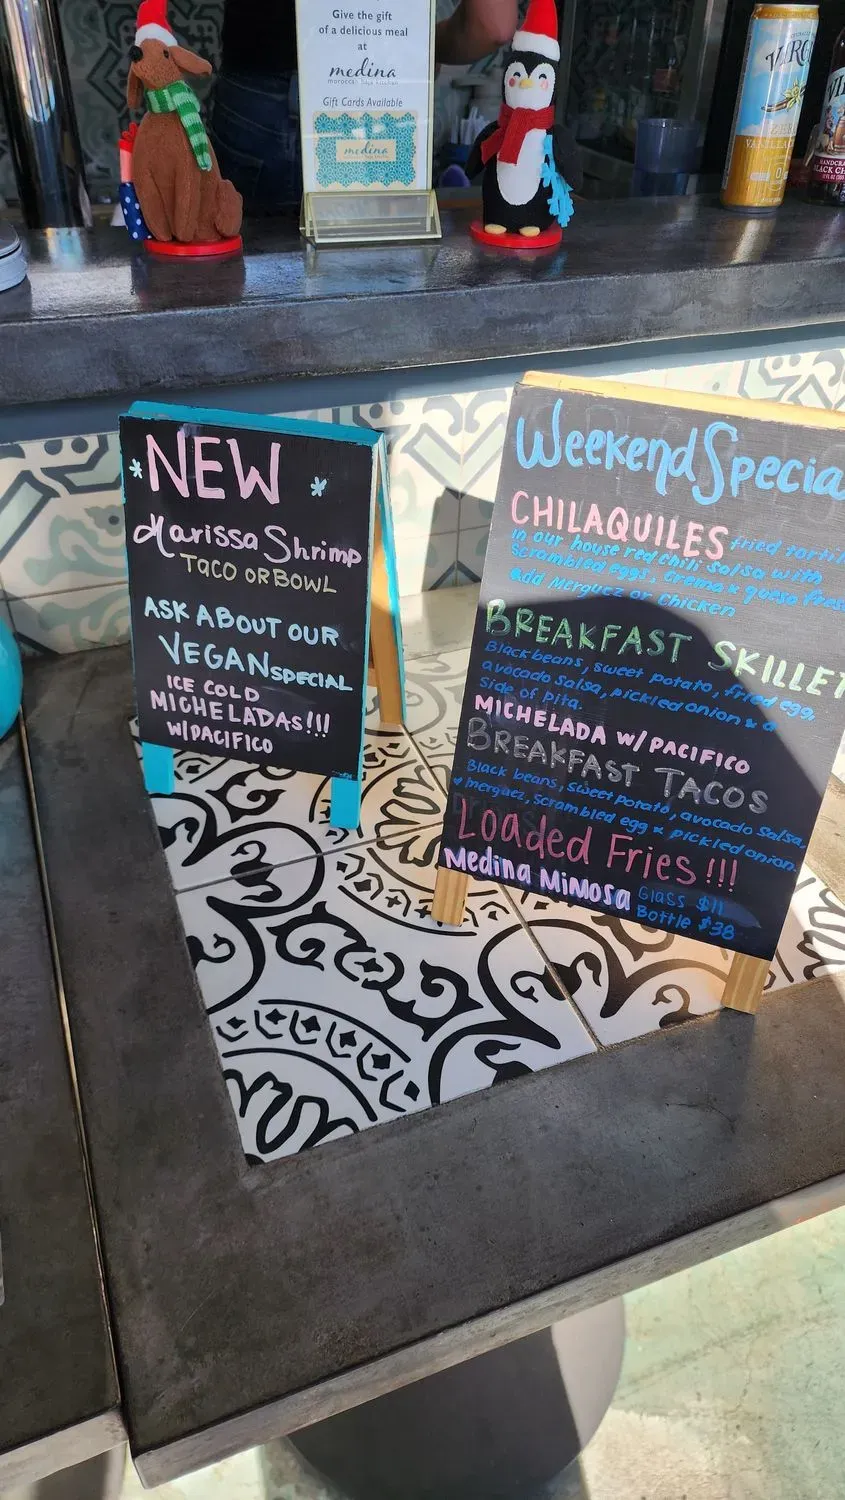 Give the gift
of a delicious meal
at
medina
moroccan baja kitchen
Gift Cards Available
medina
VANILLA
BLACK CH
NEW
Harissa Shrimp
TACO OR BOWL
ASK ABOUT OUR
VEGAN SPECIAL
ICE COLD
MICHELADAS!!!
W/PACIFICO
Weekend Specia
CHILAQUILES fried tortil
in our house red chili salsa with
Scrambled eggs, crema & queso fres
Add Merguez or Chicken
BREAKFAST SKILLET
Black beans, sweet potato, fried egg,
avocado salsa, pickled onion & a
side of pita.
MICHELADA W/PACIFICO
BREAKFAST TACOS
Black beans, sweet potato, avocado salsa,
merguez, scrambled egg & pickled onion.
Loaded Fries!!!
Medina Mimosa Glass $11
Bottle $38